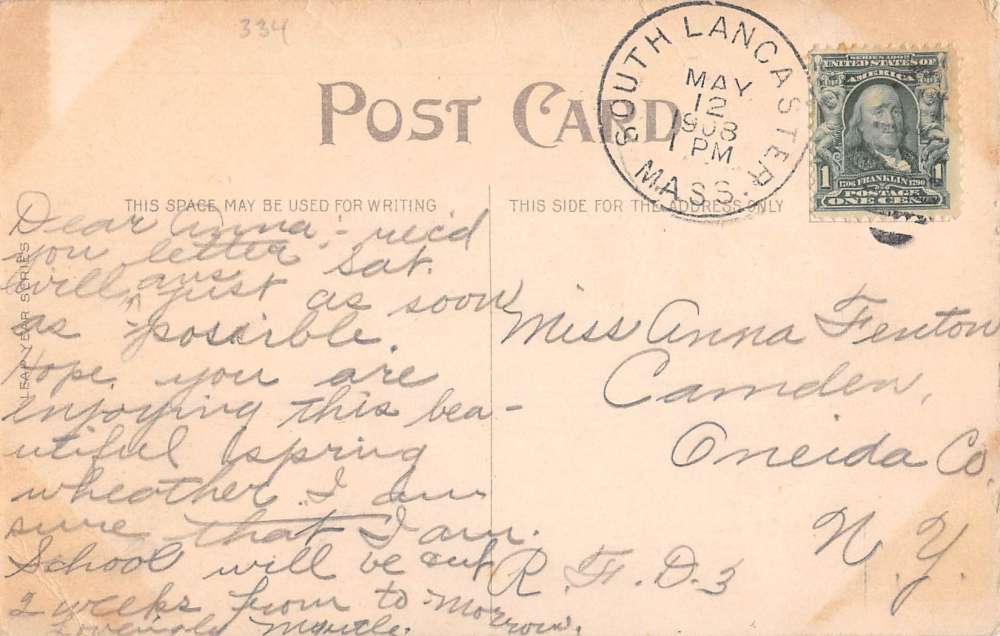 334
POST CARD
SOUTH LANCASTER
MAY
12
1908
1 PM
MASS.
SERIES 1902
UNITED STATES OF
AMERICA
1
1706 FRANKLIN 1790
POSTAGE
ONE CENT
THIS SPACE MAY BE USED FOR WRITING
THIS SIDE FOR THE ADDRESS ONLY
LEAP YEAR SERIES
Dear Anna;- rec'd
you letter Sat.
will ans just as soon
as possible.
Hope you are
enjoying this bea-
utiful spring
wheather I am
sure that I am.
School will be out
2 weeks from to morrow.
Lovingly Myrtle.
Miss Anna Fenton
Camden,
Oneida Co.
N. Y.
R. F. D. 3